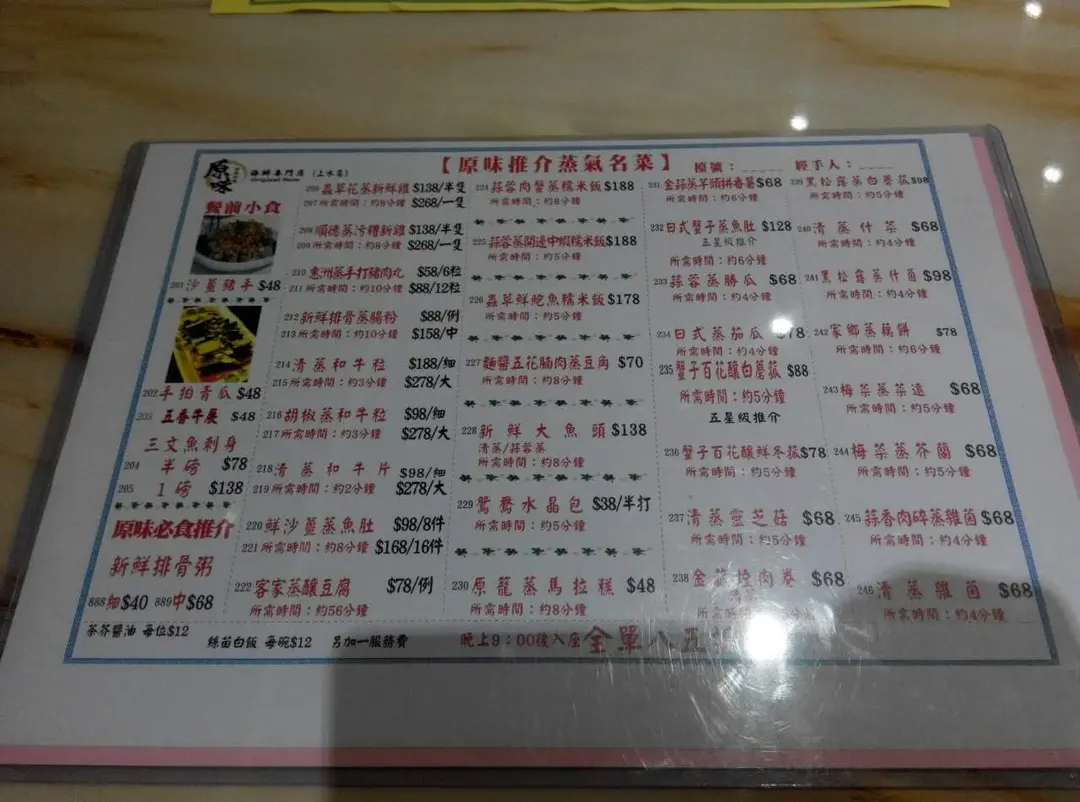 原味
海鮮專門店 (上水店)
【原味推介蒸氣名菜】
檯號：
經手人：
餐前小食
201 沙薑豬手 $48
202 手拍青瓜 $48
203 五香牛展 $48
三文魚刺身
204 半磅 $78
205 1磅 $138
原味必食推介
新鮮排骨粥
888細$40 889中$68
206 蟲草花蒸新鮮雞 $138/半隻
207所需時間：約8分鐘 $268/一隻
208 順德蒸污糟新雞 $138/半隻
209所需時間：約8分鐘 $268/一隻
210 惠洲蒸手打豬肉丸 $58/6粒
211所需時間：約10分鐘 $88/12粒
212 新鮮排骨蒸腸粉 $88/例
213所需時間：約10分鐘 $158/中
214 清蒸和牛粒 $188/細
215所需時間：約3分鐘 $278/大
216 胡椒蒸和牛粒 $98/細
217所需時間：約3分鐘 $278/大
218 清蒸和牛片 $98/細
219所需時間：約2分鐘 $278/大
220 鮮沙薑蒸魚肚 $98/8件
221所需時間：約8分鐘 $168/16件
222 客家蒸釀豆腐 $78/例
所需時間：約56分鐘
224 蒜蓉肉蟹蒸糯米飯 $188
所需時間：約8分鐘
225 蒜蓉蒸開邊中蝦糯米飯 $188
所需時間：約5分鐘
226 蟲草鮮鮑魚糯米飯 $178
所需時間：約5分鐘
227 麵醬五花腩肉蒸豆角 $70
所需時間：約8分鐘
228 新鮮大魚頭 $138
清蒸/蒜蓉蒸
所需時間：約8分鐘
229 鴛鴦水晶包 $38/半打
所需時間：約5分鐘
230 原籠蒸馬拉糕 $48
所需時間：約8分鐘
231 金蒜蒸芋頭拼番薯 $68
所需時間：約6分鐘
232 日式蟹子蒸魚肚 $128
五星級推介
所需時間：約6分鐘
233 蒜蓉蒸勝瓜 $68
所需時間：約4分鐘
234 日式蒸茄瓜 $78
所需時間：約4分鐘
235 蟹子百花釀白蘑菇 $88
所需時間：約5分鐘
五星級推介
236 蟹子百花釀鮮冬菇 $78
所需時間：約5分鐘
237 清蒸靈芝菇 $68
所需時間：約5分鐘
238 金菇 肉卷 $68
所需時間：約5分鐘
239 黑松露蒸白蘑菇 $98
所需時間：約5分鐘
240 清蒸什菜 $68
所需時間：約4分鐘
241 黑松露蒸什菌 $98
所需時間：約4分鐘
242 家鄉蒸藕餅 $78
所需時間：約6分鐘
243 梅菜蒸菜遠 $68
所需時間：約5分鐘
244 梅菜蒸芥蘭 $68
所需時間：約5分鐘
245 蒜香肉碎蒸雜菌 $68
所需時間：約4分鐘
246 清蒸雜菌 $68
所需時間：約4分鐘
茶芥醬油 每位$12
絲苗白飯 每碗$12
另加一服務費
晚上9：00後入座 全單八五